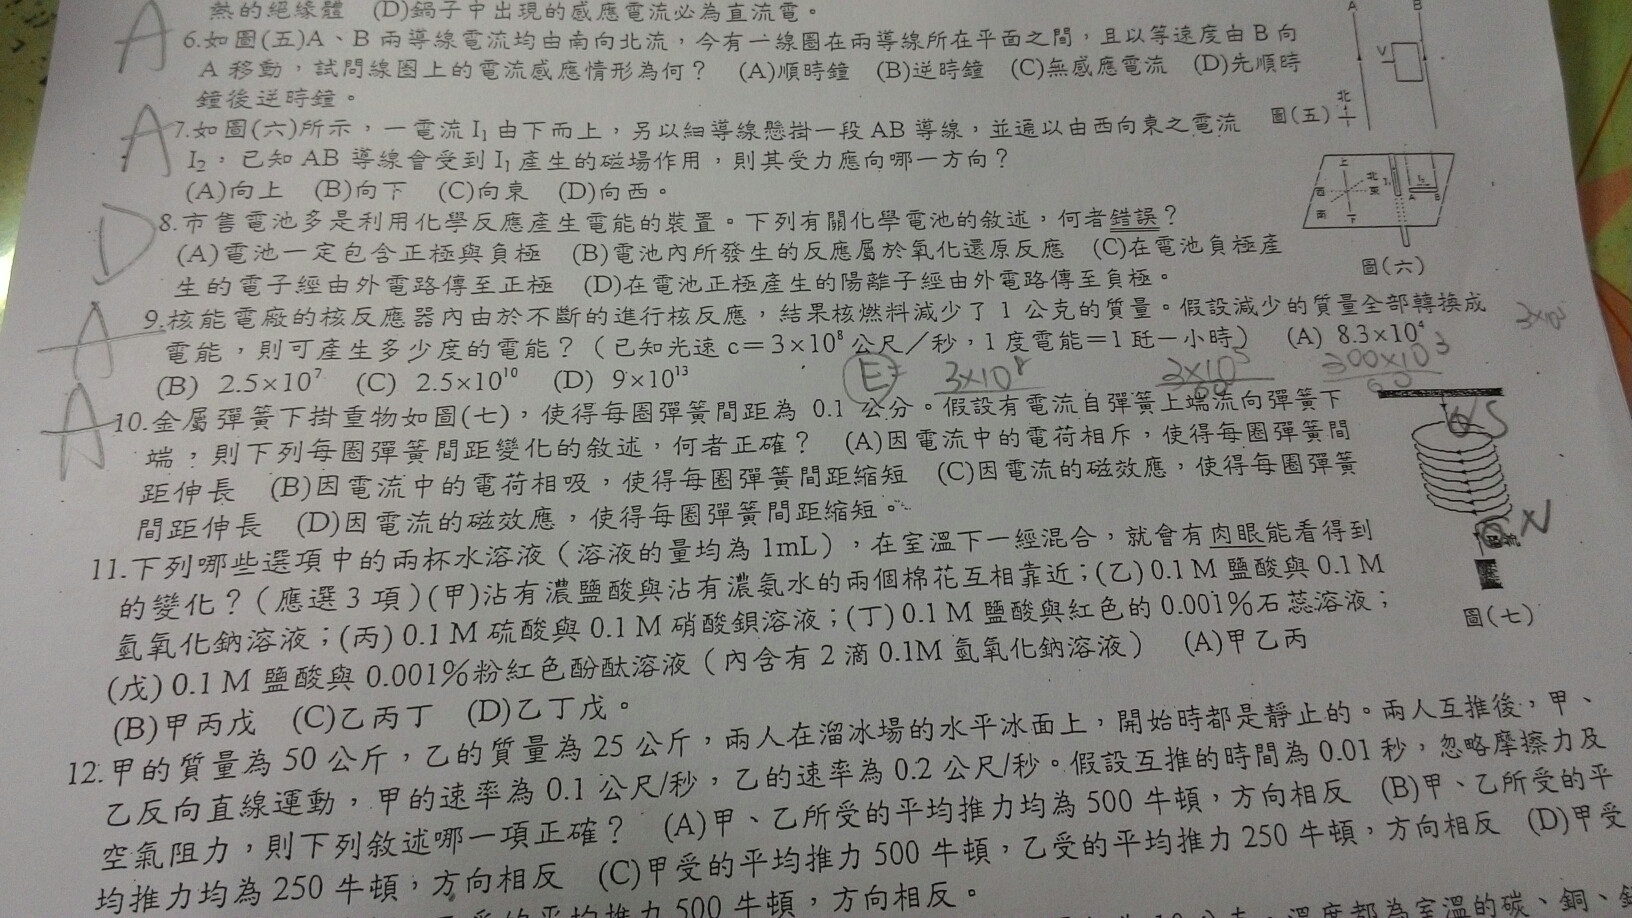 熱的絕緣體 (D)鍋子中出現的感應電流必為直流電。
A
6.如圖(五)A、B兩導線電流均由南向北流，今有一線圈在兩導線所在平面之間，且以等速度由B向
A移動，試問線圈上的電流感應情形為何？ (A)順時鐘 (B)逆時鐘 (C)無感應電流 (D)先順時
鐘後逆時鐘。
A B
V
北
圖(五)
A
7.如圖(六)所示，一電流I₁由下而上，另以細導線懸掛一段AB導線，並通以由西向東之電流
I₂，已知AB導線會受到I₁產生的磁場作用，則其受力應向哪一方向？
(A)向上 (B)向下 (C)向東 (D)向西。
上
北
西 東
南 下
I₁ I₂
A B
圖(六)
D
8.市售電池多是利用化學反應產生電能的裝置。下列有關化學電池的敘述，何者錯誤？
(A)電池一定包含正極與負極 (B)電池內所發生的反應屬於氧化還原反應 (C)在電池負極產
生的電子經由外電路傳至正極 (D)在電池正極產生的陽離子經由外電路傳至負極。
A
9.核能電廠的核反應器內由於不斷的進行核反應，結果核燃料減少了1公克的質量。假設減少的質量全部轉換成
電能，則可產生多少度的電能？（已知光速c＝3×10⁸公尺／秒，1度電能＝1瓩－小時） (A) 8.3×10⁴
(B) 2.5×10⁷ (C) 2.5×10¹⁰ (D) 9×10¹³
3×10⁸
300×10³
60
A
10.金屬彈簧下掛重物如圖(七)，使得每圈彈簧間距為 0.1 公分。假設有電流自彈簧上端流向彈簧下
端，則下列每圈彈簧間距變化的敘述，何者正確？ (A)因電流中的電荷相斥，使得每圈彈簧間
距伸長 (B)因電流中的電荷相吸，使得每圈彈簧間距縮短 (C)因電流的磁效應，使得每圈彈簧
間距伸長 (D)因電流的磁效應，使得每圈彈簧間距縮短。
S
N
圖(七)
11.下列哪些選項中的兩杯水溶液（溶液的量均為1mL），在室溫下一經混合，就會有肉眼能看得到
的變化？(應選3項)(甲)沾有濃鹽酸與沾有濃氨水的兩個棉花互相靠近；(乙)0.1 M 鹽酸與0.1 M
氫氧化鈉溶液；(丙) 0.1 M 硫酸與0.1 M 硝酸鋇溶液；(丁) 0.1 M 鹽酸與紅色的0.001%石蕊溶液；
(戊) 0.1 M 鹽酸與 0.001%粉紅色酚酞溶液（內含有2滴0.1M氫氧化鈉溶液） (A)甲乙丙
(B)甲丙戊 (C)乙丙丁 (D)乙丁戊。
12.甲的質量為50公斤，乙的質量為25公斤，兩人在溜冰場的水平冰面上，開始時都是靜止的。兩人互推後，甲、
乙反向直線運動，甲的速率為0.1公尺/秒，乙的速率為0.2公尺/秒。假設互推的時間為0.01秒，忽略摩擦力及
空氣阻力，則下列敘述哪一項正確？ (A)甲、乙所受的平均推力均為500牛頓，方向相反 (B)甲、乙所受的平
均推力均為250牛頓，方向相反 (C)甲受的平均推力500牛頓，乙受的平均推力250牛頓，方向相反 (D)甲受
500牛頓，方向相反。
溫度都為室溫的碳、銅、